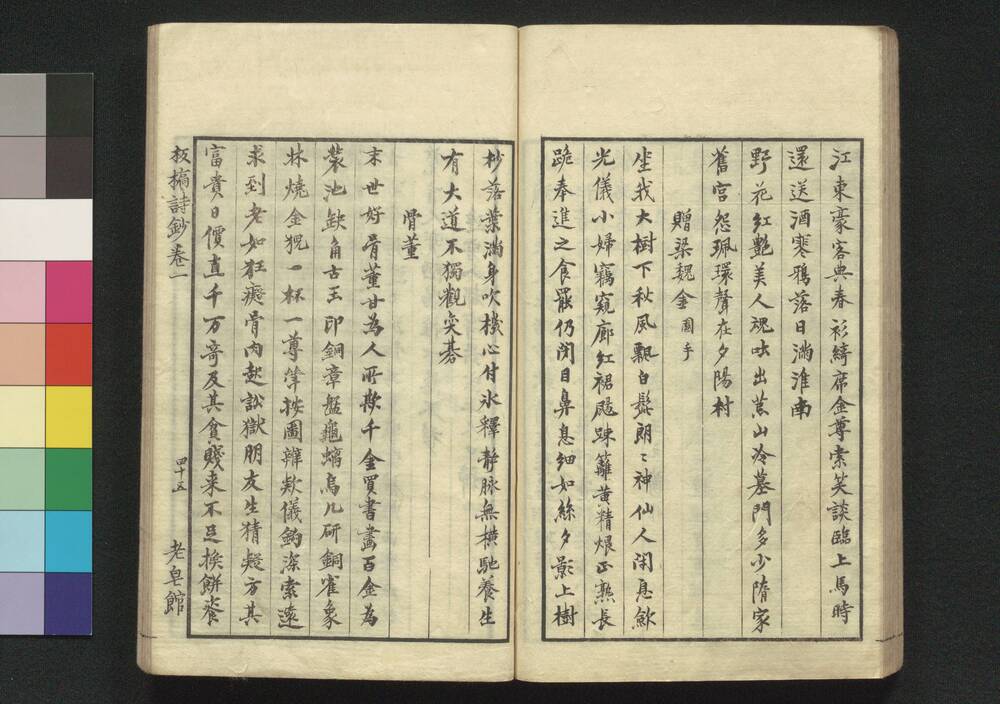 江東豪客典春衫綺席金尊索笑談臨上馬時
還送酒寒鴉落日滿淮南
野花紅艷美人魂吐出荒山冷墓門多少隋家
舊宮怨珮環聲在夕陽村
贈梁魏金國手
坐我大樹下秋風飄白髭朗〻神仙人閉息歛
光儀小婦竊窺廊紅裙颺踈籬黃精煨正熟長
跪奉進之食罷仍閉目鼻息細如絲夕影上樹
杪落葉滿身吹機心付冰釋靜脉無橫馳養生
有大道不獨觀奕碁
骨董
末世好骨董甘為人所欺千金買書畫百金為
裝池缺角古玉印銅章盤龜螭烏几研銅雀象
牀燒金猊一杯一尊斝按圖辨欵儀鈎深索遠
求到老如狂癡骨肉起訟獄朋友生猜疑方其
富貴日價直千万奇及其貧賤来不足換餅餈
板橋詩鈔卷一
四十五
老皂館